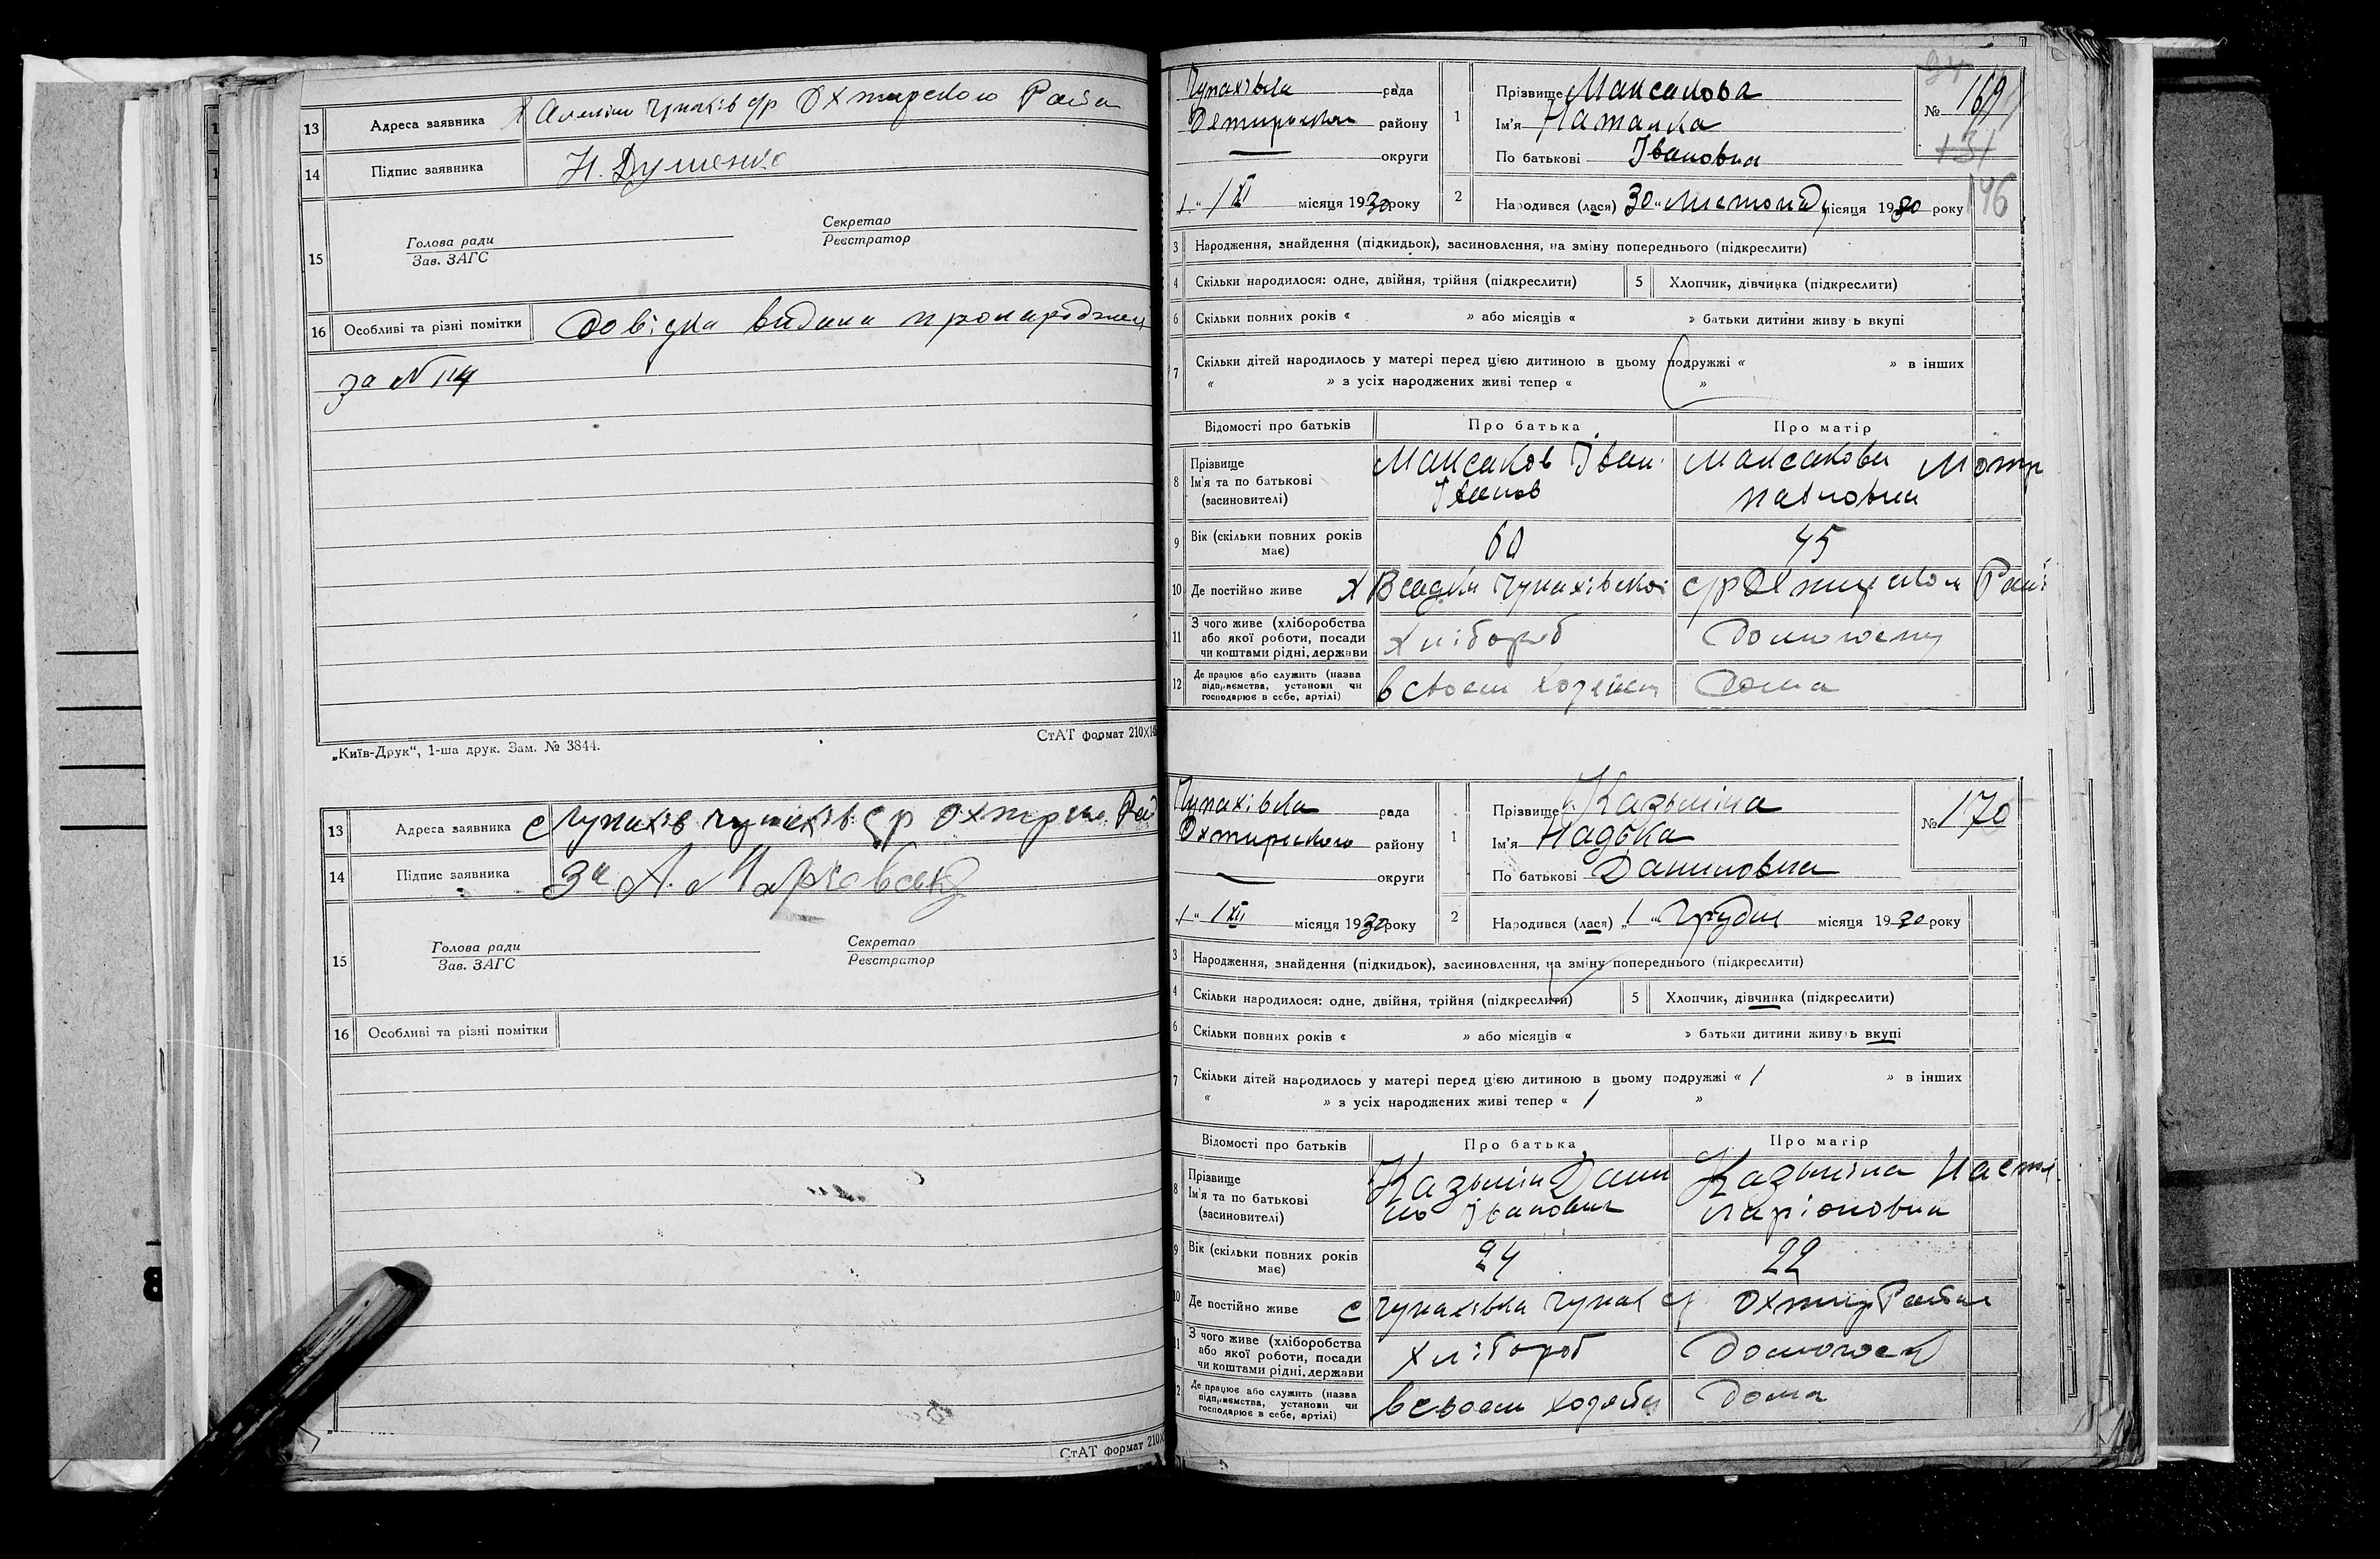 13 Адреса заявника Охтирского
14 Підпис заявника Н. Душенко
15 Голова ради Секретар
Зав. ЗАГС Реєстратор
16 Особливі та різні помітки довідка видана
за №
„Київ-Друк“, 1-ша друк. Зам. № 3844.
СтАТ формат 210X
13 Адреса заявника с Чупахів
14 Підпис заявника За А.
15 Голова ради Секретар
Зав. ЗАГС Реєстратор
16 Особливі та різні помітки
СтАТ формат 210X
Чупахівка рада
району
округи
1 " 1 XI місяця 1930 року
1 Прізвище Максакова
Ім'я Наталка
По батькові Івановна
№ 169
131
196
2 Народився (лася) 30 " листопаду місяця 1930 року
3 Народження, знайдення (підкидьок), засиновлення, на зміну попереднього (підкреслити)
4 Скільки народилося: одне, двійня, трійня (підкреслити) 5 Хлопчик, дівчинка (підкреслити)
6 Скільки повних років « » або місяців « » батьки дитини живуть вкупі
7 Скільки дітей народилось у матері перед цією дитиною в цьому подружжі « » в інших
« » з усіх народжених живі тепер « »
Відомості про батьків Про батька Про матір
8 Прізвище Ім'я та по батькові (засиновителі) Максаков Іван Максакова Мотр
Іванов Павловна
9 Вік (скільки повних років має) 60 45
10 Де постійно живе Чупахівскої с/р
11 З чого живе (хліборобства або якої роботи, посади чи коштами рідні, держави хлібороб
12 Де працює або служить (назва підприємства, установи чи господарює в себе, артілі) в своем дома
Чупахівка рада
Охтирского району
округи
1 " 1 XII місяця 1930 року
1 Прізвище Казьміна
Ім'я Надька
По батькові Даниловна
№ 170
2 Народився (лася) „ 1 " Грудня місяця 1930 року
3 Народження, знайдення (підкидьок), засиновлення, на зміну попереднього (підкреслити)
4 Скільки народилося: одне, двійня, трійня (підкреслити) 5 Хлопчик, дівчинка (підкреслити)
6 Скільки повних років « » або місяців « » батьки дитини живуть вкупі
7 Скільки дітей народилось у матері перед цією дитиною в цьому подружжі « 1 » в інших
« » з усіх народжених живі тепер « 1 »
Відомості про батьків Про батька Про матір
8 Прізвище Ім'я та по батькові (засиновителі) Казьмін Дани Казьміна Наст
ло Іванович Ларіоновна
9 Вік (скільки повних років має) 24 22
10 Де постійно живе с Чупахівка Чупах с/р Охтир Района
11 З чого живе (хліборобства або якої роботи, посади чи коштами рідні, держави хлібороб
12 Де працює або служить (назва підприємства, установи чи господарює в себе, артілі) в своем дома